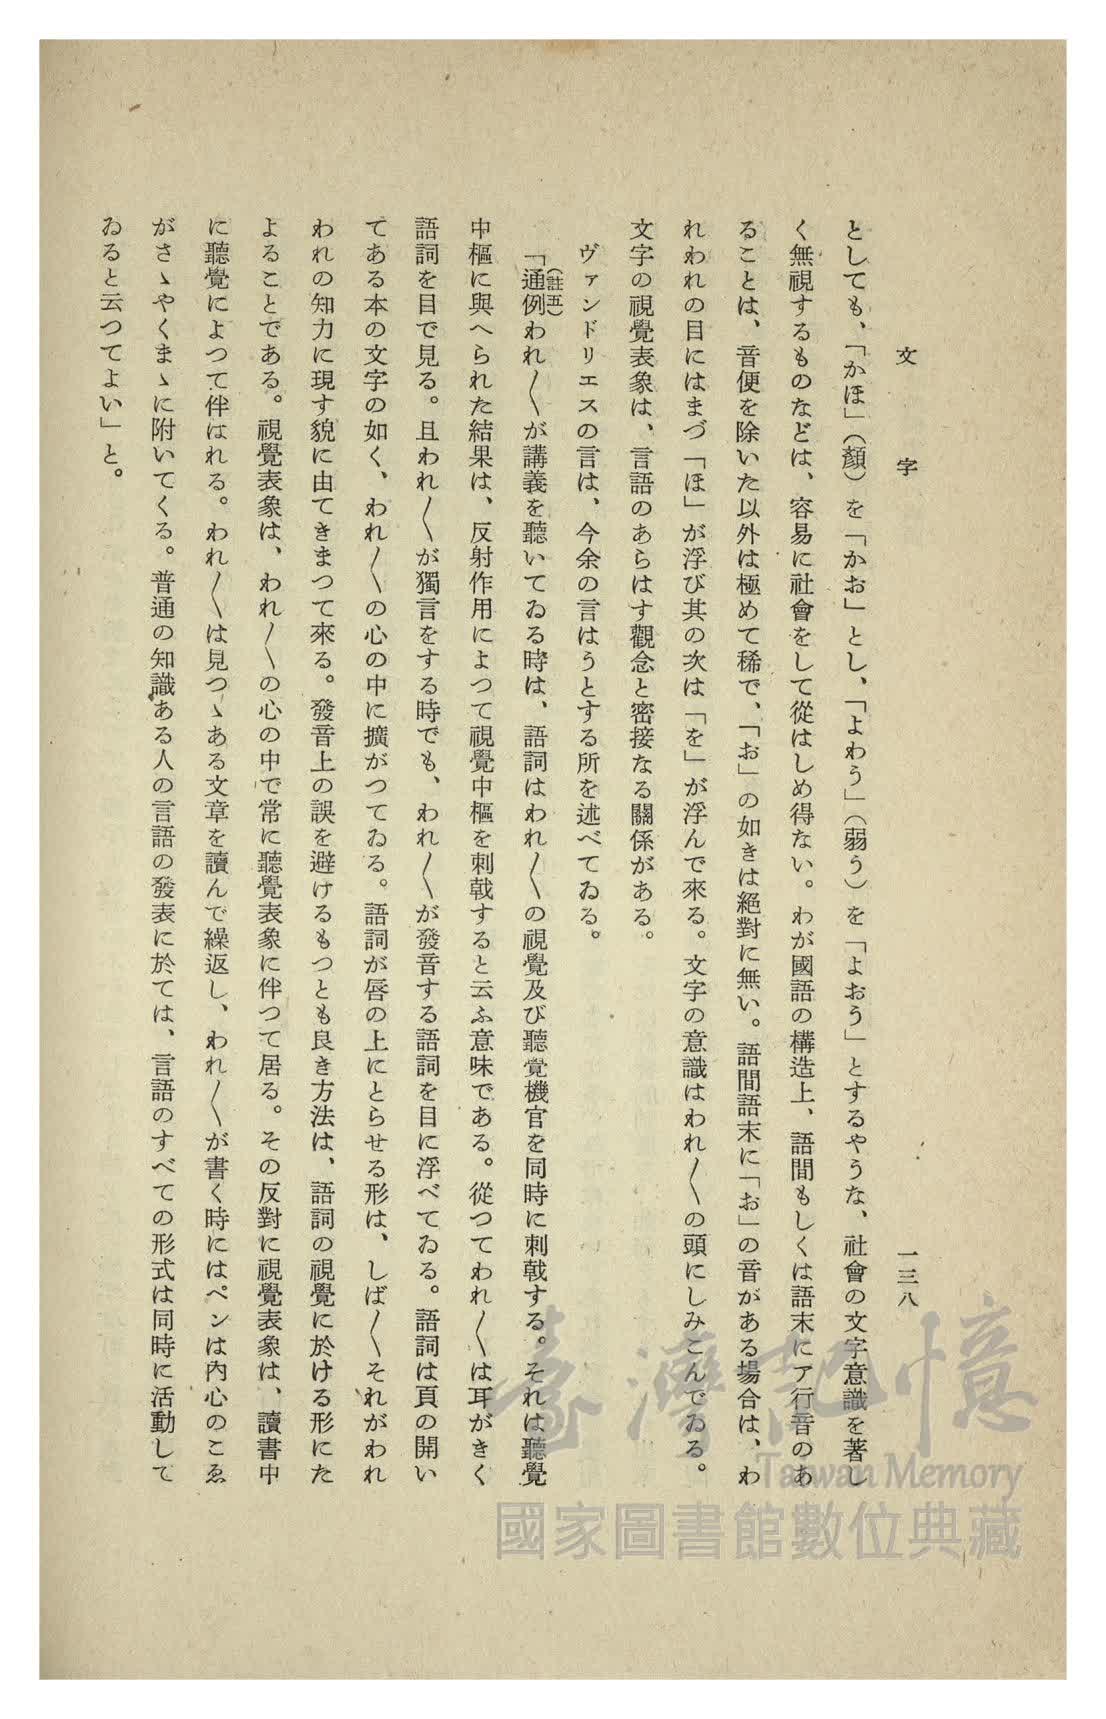 文字
一三八
としても、「かほ」（顏）を「かお」とし、「よわう」（弱う）を「よおう」とするやうな、社會の文字意識を著し
く無視するものなどは、容易に社會をして從はしめ得ない。わが國語の構造上、語間もしくは語末にア行音のあ
ることは、音便を除いた以外は極めて稀で、「お」の如きは絕對に無い。語間語末に「お」の音がある場合は、わ
れわれの目にはまづ「ほ」が浮び其の次は「を」が浮んで來る。文字の意識はわれ〳〵の頭にしみこんでゐる。
文字の視覺表象は、言語のあらはす觀念と密接なる關係がある。
ヴァンドリエスの言は、今余の言はうとする所を述べてゐる。
（註五）
「通例われ〳〵が講義を聽いてゐる時は、語詞はわれ〳〵の視覺及び聽覺機官を同時に刺戟する。それは聽覺
中樞に與へられた結果は、反射作用によつて視覺中樞を刺戟すると云ふ意味である。從つてわれ〳〵は耳がきく
語詞を目で見る。且われ〳〵が獨言をする時でも、われ〳〵が發音する語詞を目に浮べてゐる。語詞は頁の開い
てある本の文字の如く、われ〳〵の心の中に擴がつてゐる。語詞が唇の上にとらせる形は、しば〳〵それがわれ
われの知力に現す貌に由てきまつて來る。發音上の誤を避けるもつとも良き方法は、語詞の視覺に於ける形にた
よることである。視覺表象は、われ〳〵の心の中で常に聽覺表象に伴つて居る。その反對に視覺表象は、讀書中
に聽覺によつて伴はれる。われ〳〵は見つゝある文章を讀んで繰返し、われ〳〵が書く時にはペンは内心のこゑ
がさゝやくまゝに附いてくる。普通の知識ある人の言語の發表に於ては、言語のすべての形式は同時に活動して
ゐると云つてよい」と。
臺灣記憶
Taiwan Memory
國家圖書館數位典藏